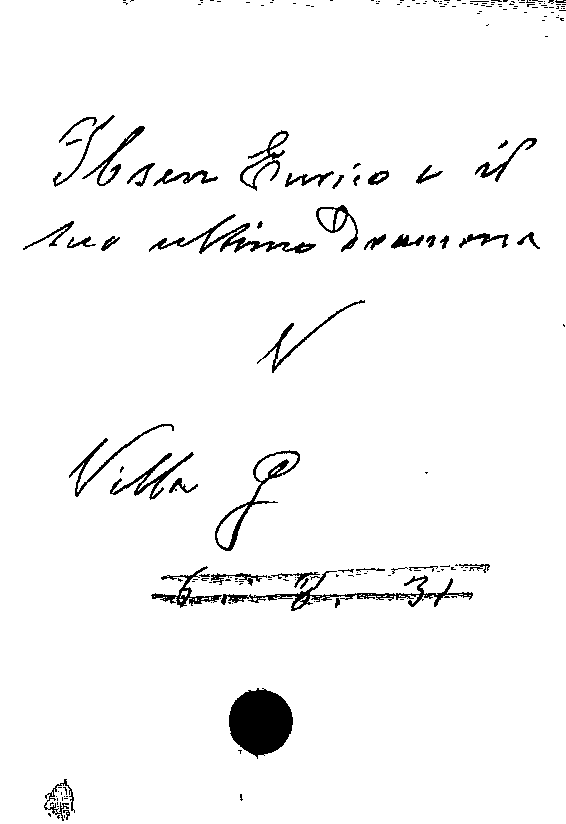 Ibsen Enrico e il
suo ultimo Dramma
V
Villa G
6. 8. 31